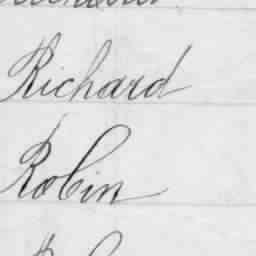 Richard
Robin